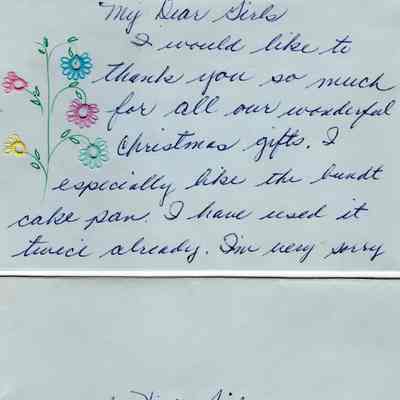 My Dear Girls
I would like to
thank you so much
for all our wonderful
Christmas gifts. I
especially like the bundt
cake pan. I have used it
twice already. I'm very sorry